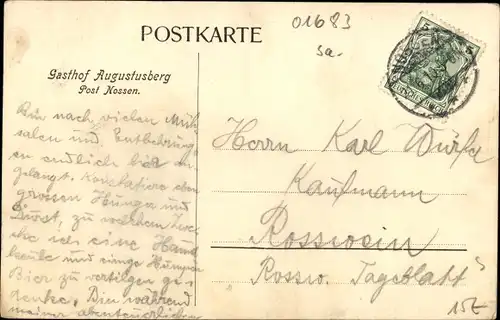 POSTKARTE
01683
5a-
Gasthof Augustusberg
Post Nossen.
Bin nach vielen Müh-
salen und Entbehrung
en endlich hier an-
gelangt. Konstatiere eben
grossen Hunger und
Durst, zu welchem Zwec
ke ich eine Hand
keule und einige Humpen
Bier zu vertilgen ge-
denke. Bin während
meiner abenteuerlichen
Herrn Karl
Kaufmann
Rosswein
Rossw. Tageblatt
15E